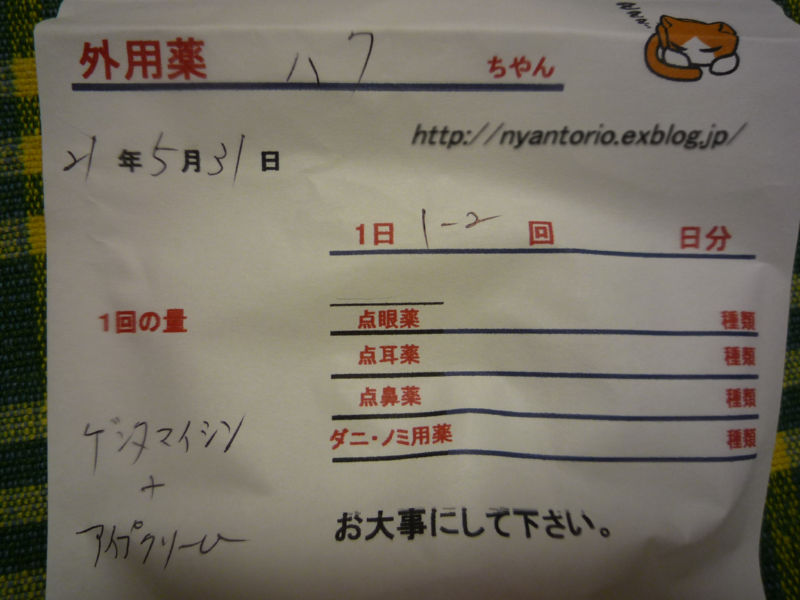 外用薬 ハク ちゃん
http://nyantorio.exblog.jp/
21年5月31日
1日 1-2 回 日分
1回の量
点眼薬 種類
点耳薬 種類
点鼻薬 種類
ダニ・ノミ用薬 種類
ゲンタマイシン
+
アイプクリーム
お大事にして下さい。